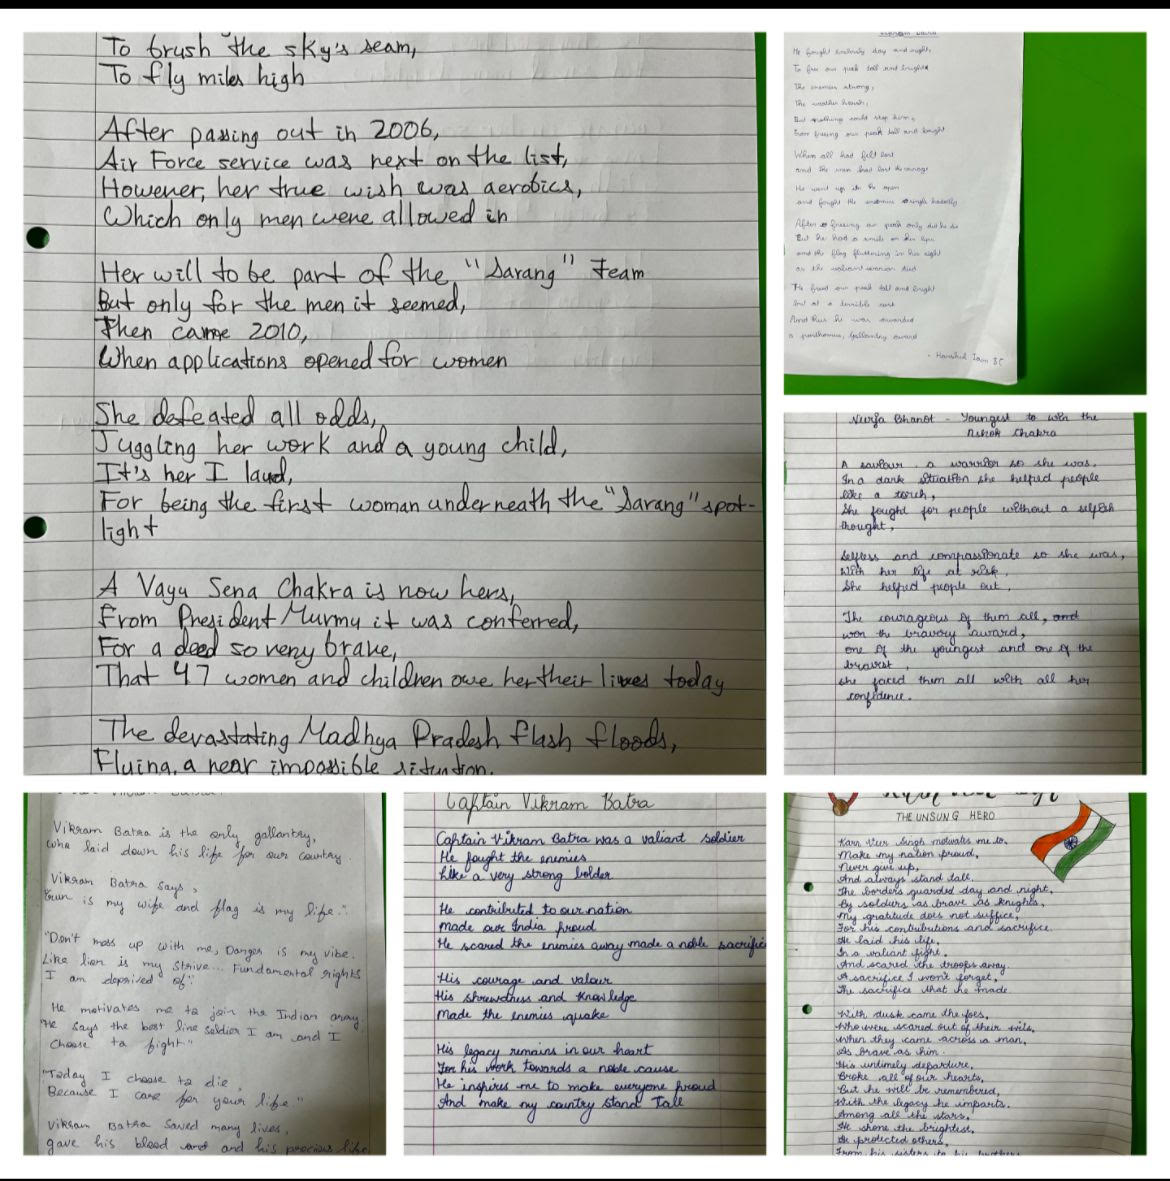 To brush the sky's seam,
To fly miles high
After passing out in 2006,
Air Force service was next on the list,
However, her true wish was aerobics,
Which only men were allowed in
Her will to be part of the "Sarang" Team
But only for the men it seemed,
Then came 2010,
When applications opened for women
She defeated all odds,
Juggling her work and a young child,
It's her I laud,
For being the first woman underneath the "Sarang" spot-
light
A Vayu Sena Chakra is now hers,
From President Murmu it was conferred,
For a deed so very brave,
That 47 women and children owe her their lives today
The devastating Madhya Pradesh flash floods,
Flying, a near impossible situation.
He fought tirelessly day and night,
To free our peak tall and bright
The enemies strong,
The weather harsh,
But nothing could stop him,
From freeing our peak tall and bright
When all had felt lost
and the men had lost the courage
He went up in the open
and fought the enemies single handedly
After freeing our peak only did he die
But he had a smile on his lips
and the flag fluttering in his sight
as the valiant warrior died
He freed our peak tall and bright
but at a terrible cost
And thus he was awarded
a posthumous, gallantry award
- Harshil Jain 8C
Nerja Bhanot - Youngest to win the
Ashok Chakra
A saviour, a warrior so she was,
In a dark situation she helped people
like a torch,
She fought for people without a selfish
thought,
Selfless and compassionate so she was,
With her life at risk,
She helped people out,
The courageous of them all,
won the bravery award,
one of the youngest and one of the
bravest,
she faced them all with all her
confidence.
Vikram Batra is the only gallantry,
who laid down his life for our country.
Vikram Batra says,
"Gun is my wife and flag is my life."
"Don't mess up with me, Danger is my vibe.
Like lion is my strive... Fundamental rights
I am deprived of".
He motivates me to join the Indian army.
"He says the best line soldier I am and I
Choose to fight"
"Today I choose to die,
Because I care for your life"
Vikram Batra saved many lives,
gave his blood and his precious life
Captain Vikram Batra
Captain Vikram Batra was a valiant soldier
He fought the enemies
Like a very strong bolder
He contributed to our nation
made our India proud
He scared the enemies away made a noble sacrifice
His courage and valour
His shrewdness and knowledge
Made the enemies quake
His legacy remains in our heart
For his work towards a noble cause
He inspires me to make everyone proud
And make my country stand Tall
THE UNSUNG HERO
Karn Veer Singh motivates me to,
Make my nation proud,
Never give up,
And always stand tall.
The borders guarded day and night,
By soldiers as brave as knights,
My gratitude does not suffice,
For his contributions and sacrifice.
He laid his life,
In a valiant fight,
And scared the troops away.
A sacrifice I won't forget,
The sacrifice that he made.
With dusk came the foes,
Who were scared out of their wits,
When they came across a man,
As brave as him.
His untimely departure,
Broke all of our hearts,
But he will be remembered,
With the legacy he imparts.
Among all the stars,
He shone the brightest,
He protected others,
From his sisters to his brothers